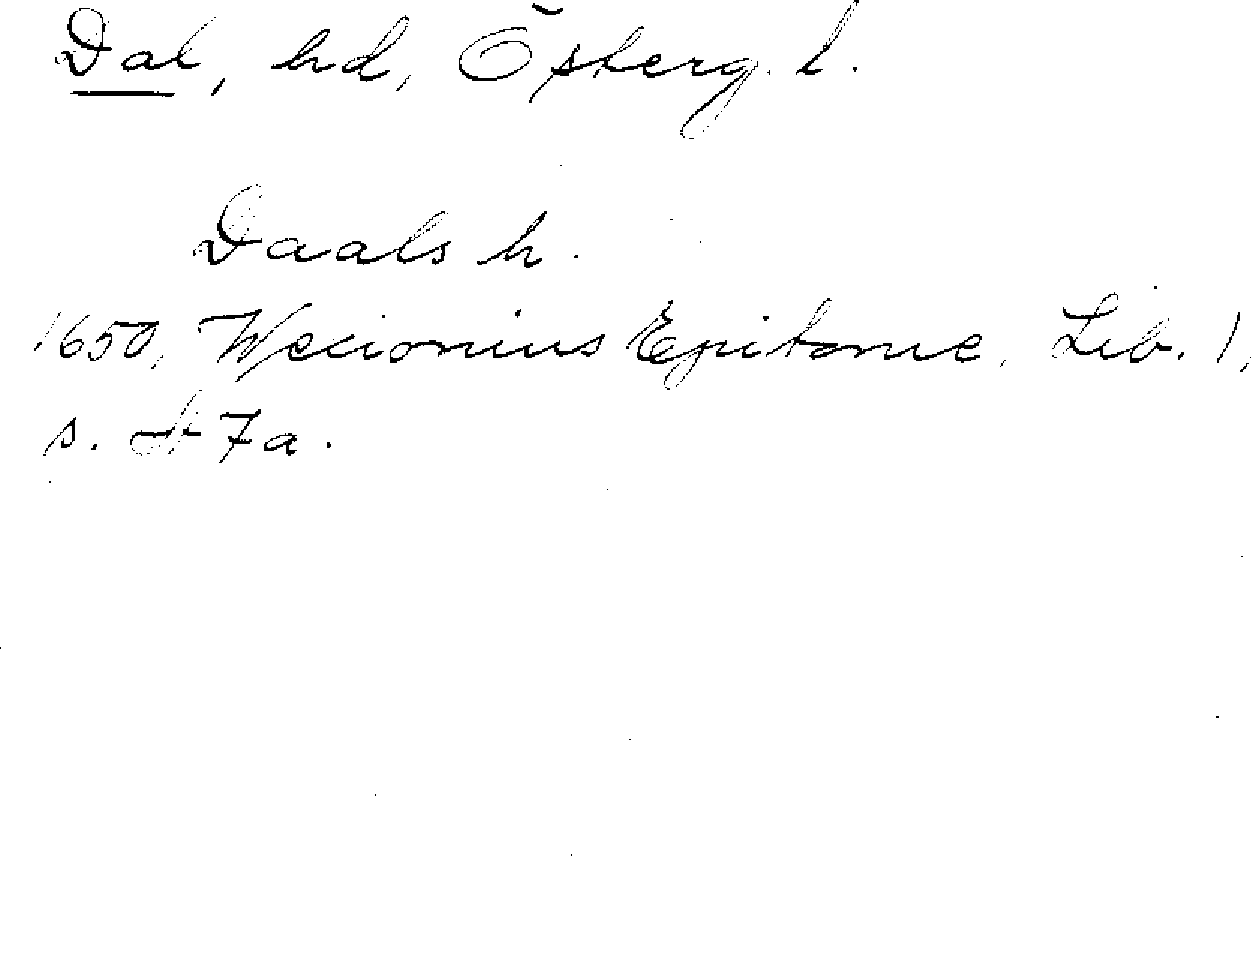 Dal, hd, Österg. l.
Daals h.
1650, Wexionius Epitome, Lib. 1,
s. 7a.